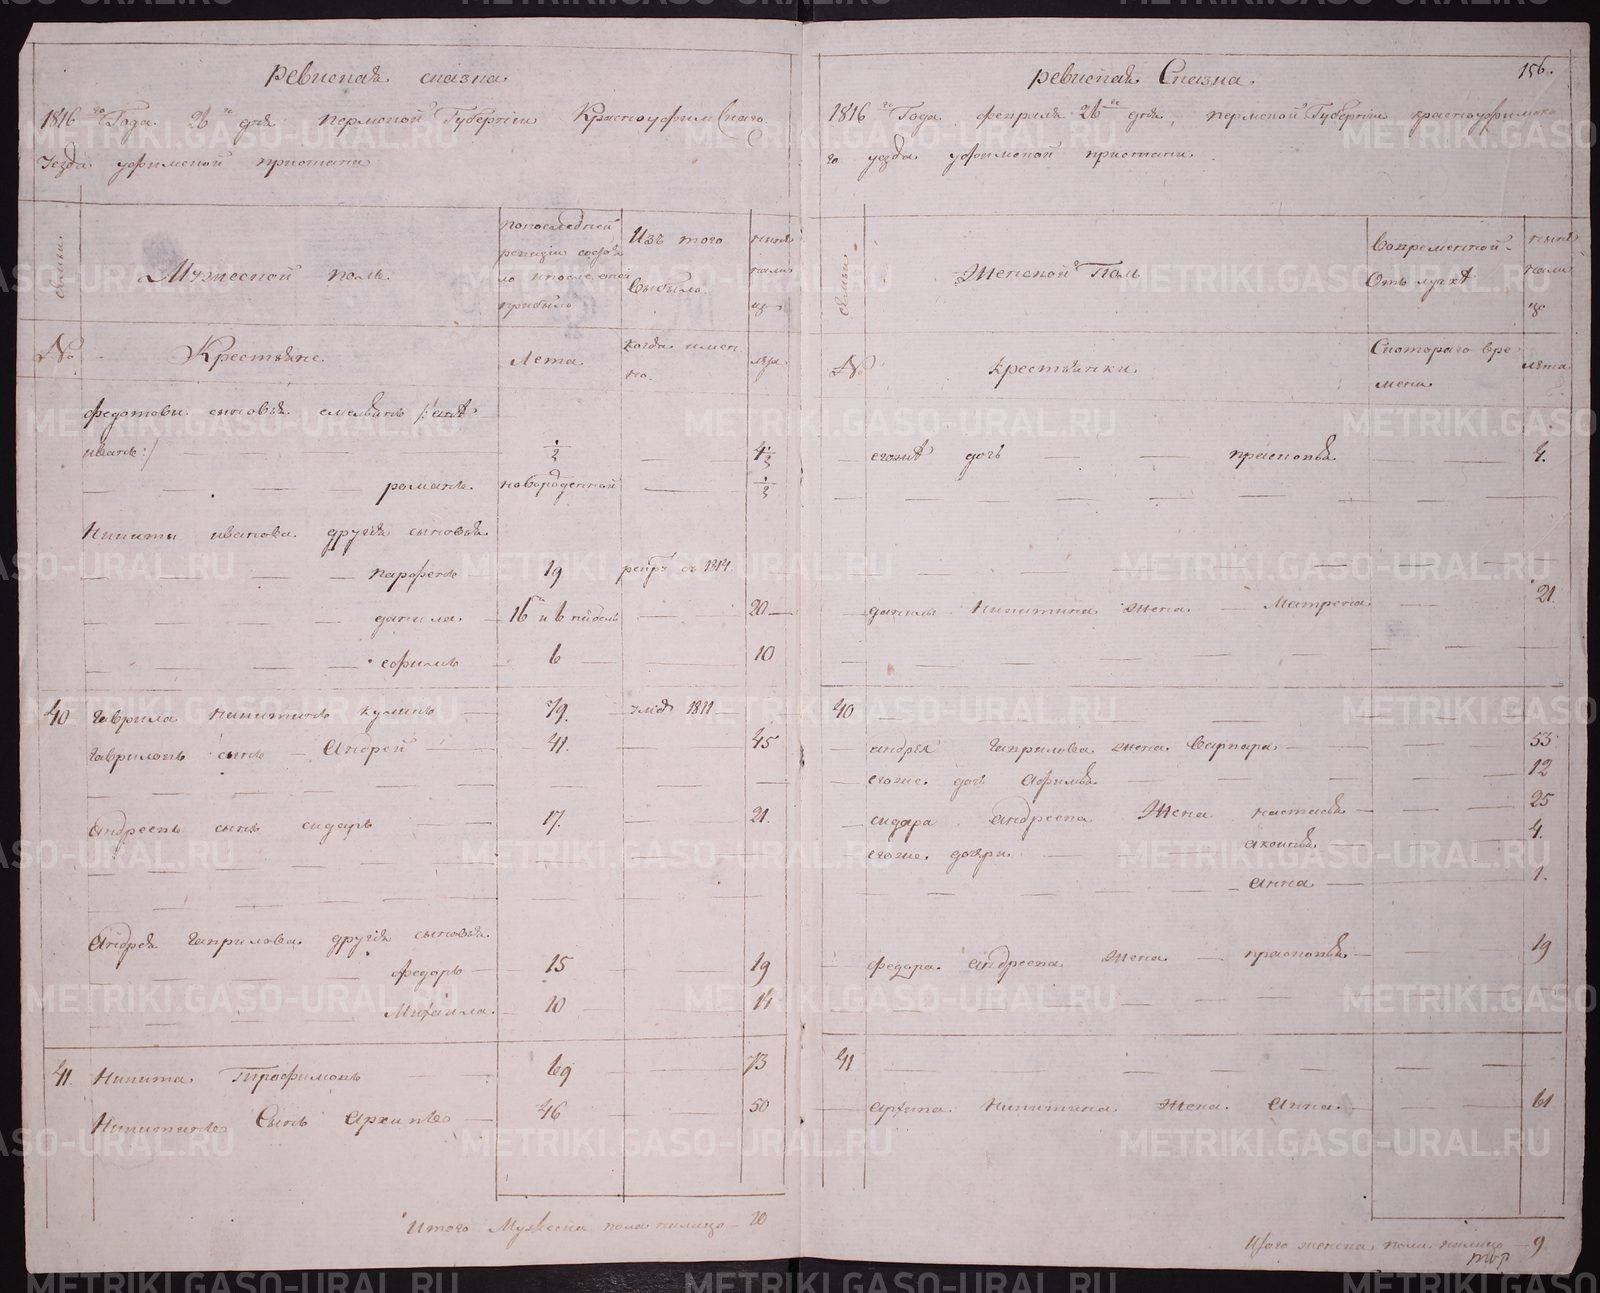 ревиская сказка
1816 го Года 26 го дня пермской Губернии Красноуфимскаго
уезда уфимской пристани
семьи
Мужеской полъ
попоследней
ревизии состоя
ло и после оной
прибыло
Изъ того
выбыло
ныне
нали
цо
№
Крестьяне
Лета
когда имен
но
лета
федотовы сыновья емельянъ /: онже
иванъ :/ 1/2 4 1/2
романъ новорожденной 1/2
Никиты иванова другия сыновья
парфенъ 19 рекрут въ 1814
данила 16 и 6 недель 20
ефимъ 6 10
40 гаврила никитинъ кулинъ 79 умре 1811
гавриловъ сынъ Андрей 41 45
Андреевъ сынъ сидаръ 17 21
Андрея гаврилова другия сыновья
федоръ 15 19
Михаила 10 14
41 Никита Трофимовъ 69 73
Никитинъ Сынъ Архипъ 46 50
Итого Мужеска пола налицо 10
ревиская Сказка
156.
1816 го Года февраля 26 го дня пермской Губернии красноуфимска
го уезда уфимской пристани
семьи
Женской Полъ
вовременной
Отлучке
ныне
нали
цо
№
крестьянки
Скотораго вре
мени
лета
егоже дочь прасковья 4
данилы Никитина жена Матрена 21
40
андрея гаврилова жена варвара 53
егоже дочь афимья 12
сидара андреева Жена настасья 25
егоже дочери аксинья 4
анна 1
федора андреева жена прасковья 19
41
архипа Никитина жена Анна 61
Итого женска пола налицо 9